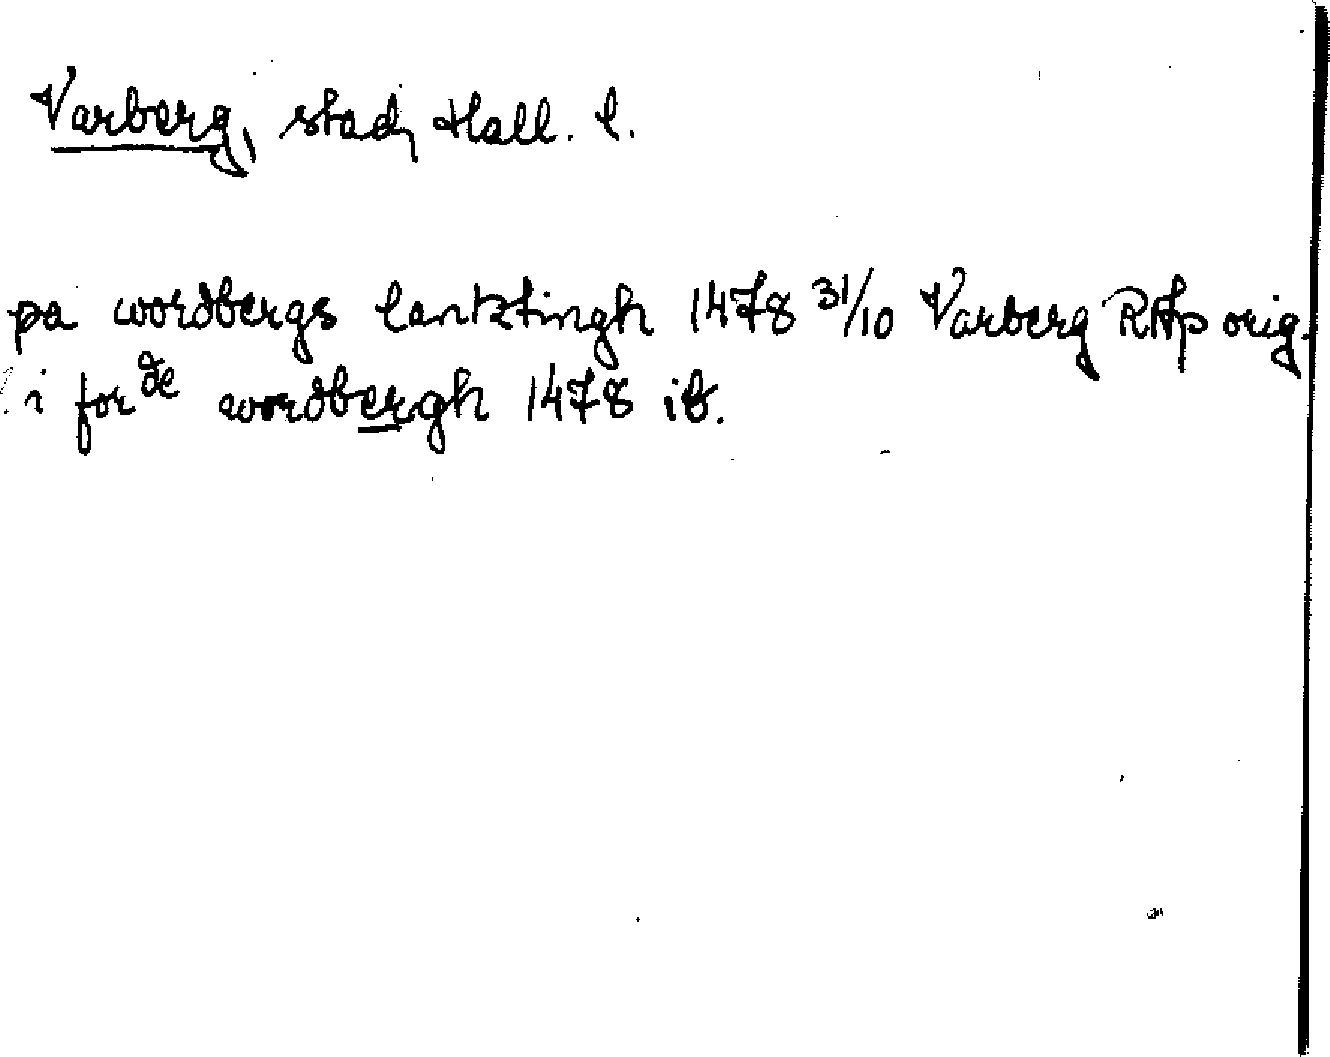 Varberg, stad, Hall. l.
pa wordbergs lanktingh 1478 31/10 Varberg RAp orig.
i for de wordbergh 1478 ib.